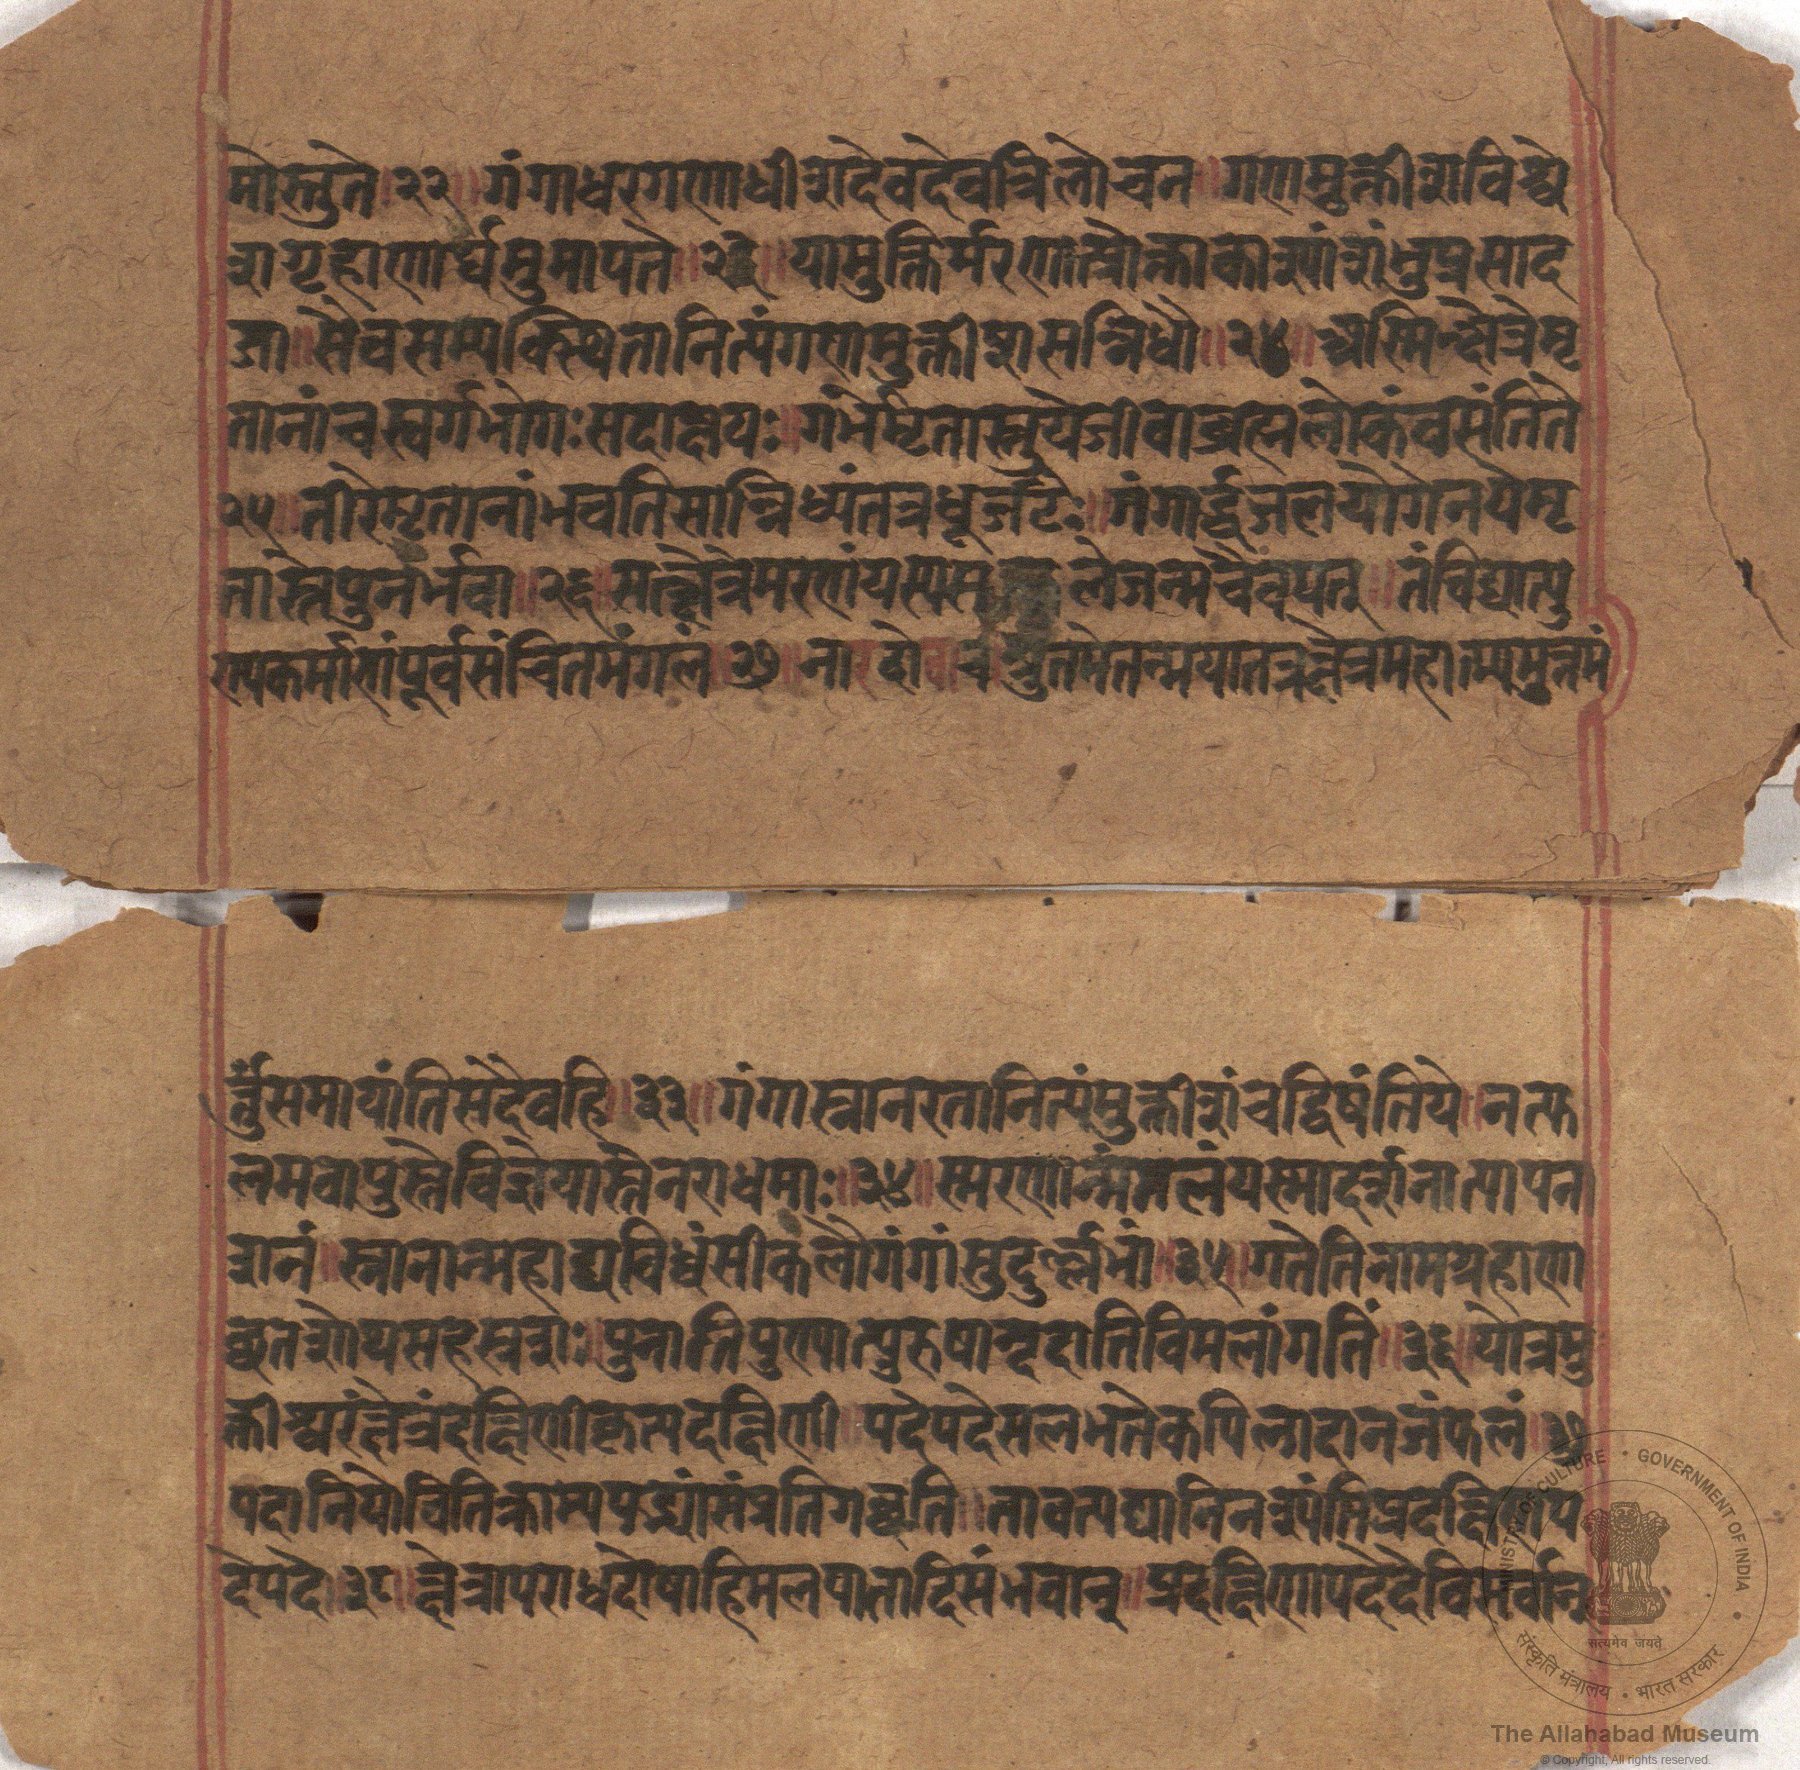 मोस्तुते ॥ २२ ॥ गंगाधरगणाधीशदेवदेवत्रिलोचन ॥ गणमुक्तीशविश्वे
शगृहाणार्घमुमापते ॥ २३ ॥ यामुक्तिर्मरणात्प्रोक्ताकाश्यांशंभुप्रसाद
जा ॥ सैवसम्यक्स्थितानित्यंगणमुक्तीशसन्निधौ ॥ २४ ॥ अस्मिन्क्षेत्रेमृ
तानांचस्वर्गभोगःसदाक्षयः ॥ गंभेर्मृतास्तुयेजीवाब्रह्मलोकंवसंतिते
२५ ॥ तीरेमृतानांभवतिसान्निध्यंतत्रधूर्जटेः ॥ गंगार्द्धजलयोगेनयेमृ
तास्तेपुनर्भवा ॥ २६ ॥ सत्क्षेत्रेमरणंयस्यस लेजन्मचैवयत् ॥ तंविद्यात्पु
ण्यकर्माणंपूर्वसंचितमंगलं ॥ २७ ॥ नारदोवाच श्रुतमेतन्मयातत्रक्षेत्रमहात्म्यमुत्तमं
र्त्तुंसमायांतिसदैवहि ॥ ३३ ॥ गंगास्नानरतानित्यंमुक्तीशंचद्विषंतिये ॥ नत्फ
लमवापुस्तेविज्ञेयास्तेनराधमाः ॥ ३४ ॥ स्मरणान्मंमलंयस्माद्दर्शनात्पापना
शनं ॥ स्नानान्महाद्यविध्वंसीकलौगंगांसुदुर्ल्लभां ॥ ३५ ॥ गतेतिनामग्रहाण
कृतशोथसहस्त्रशः ॥ पुनातिपुण्यात्पुरुषान्ददातिविमलांगतिं ॥ ३६ ॥ योत्रमु
क्तीश्वरंक्षेत्रंदक्षिणीकृत्यदक्षिणी ॥ पदेपदेसलभतेकपिलादानजंफलं ॥ ३७
पदानियोवितिक्राम्यपद्भ्यांसंप्रतिगच्छति ॥ तावत्पद्यानिनश्यंतिप्रदक्षिणाप
देपदे ॥ ३८ ॥ क्षेत्रापराधदोषाहिमलपातादिसंभवान् ॥ प्रदक्षिणापदेदेविसर्वान्
MINISTRY OF CULTURE • GOVERNMENT OF INDIA
सत्यमेव जयते
संस्कृति मंत्रालय • भारत सरकार
The Allahabad Museum
© Copyright, All rights reserved.